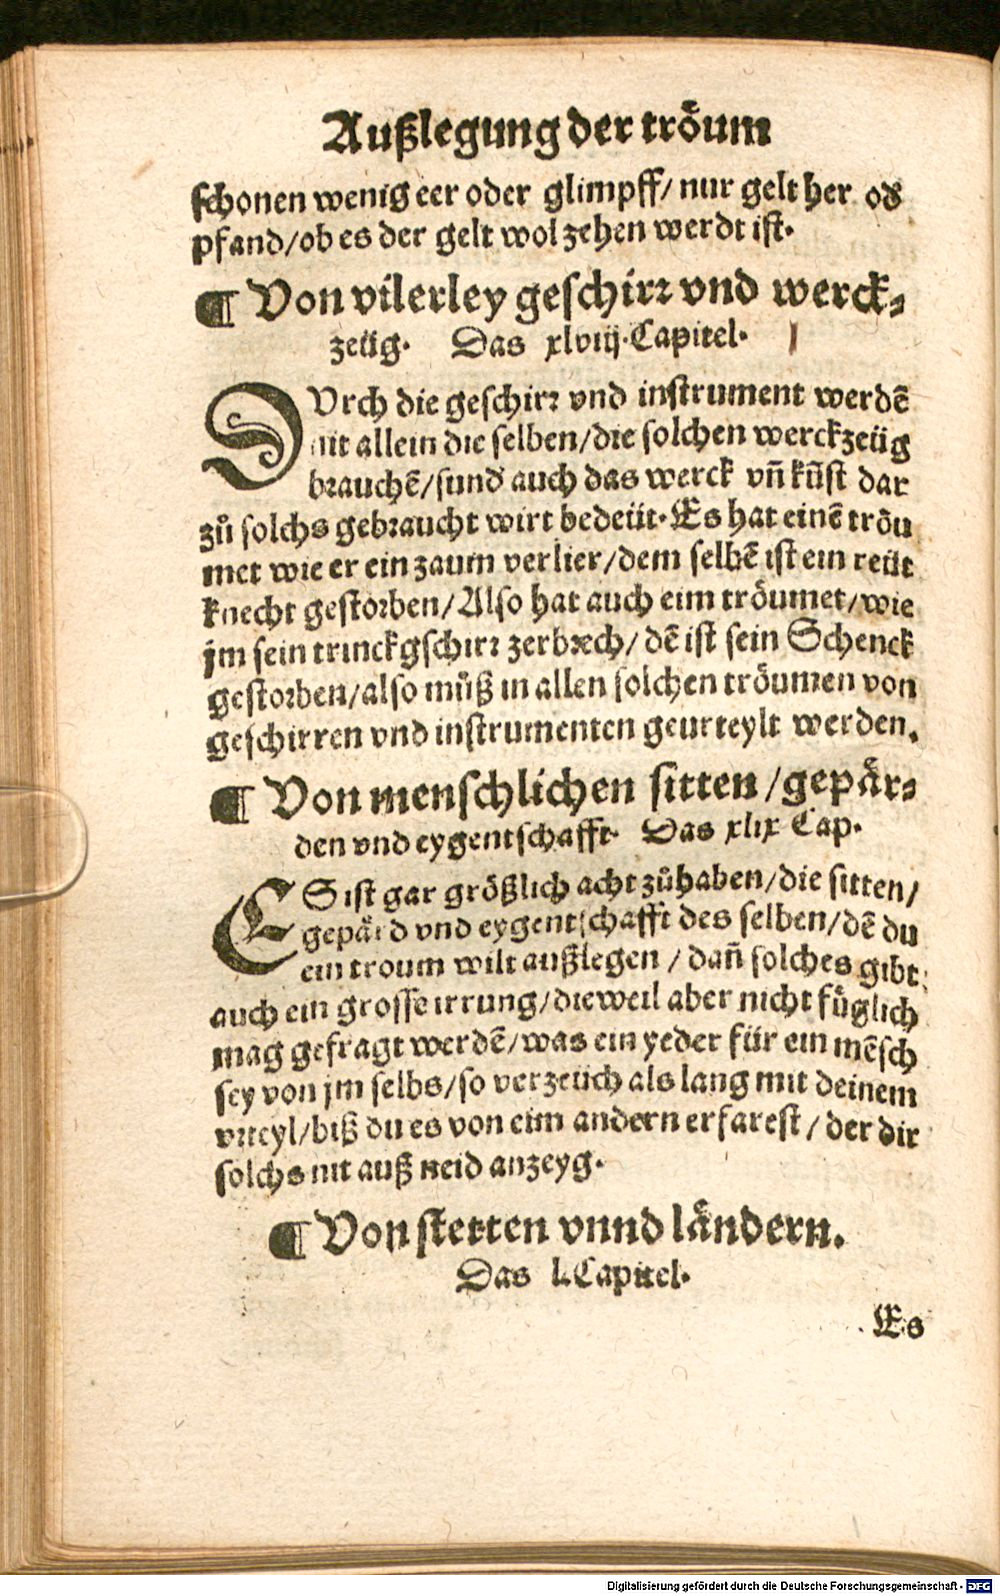 Außlegung der tröum
schonen wenig eer oder glimpff/ nur gelt her od
pfand/ob es der gelt wol zehen werdt ist.
¶ Von vilerley geschirr vnd werck⸗
zeüg. Das xlviij. Capitel.
DVrch die geschirr vnd instrument werdē
nit allein die selben/die solchen werckzeüg
brauchē/sund̕ auch das werck vñ kũst dar
zů solchs gebraucht wirt bedeüt. Es hat einē tröu
met wie er ein zaum verlier/dem selbē ist ein reüt
knecht gestorben/Also hat auch eim tröumet/wie
jm sein trinckgschirr zerbrech/dē ist sein Schenck
gestorben/also můß in allen solchen tröumen von
geschirren vnd instrumenten geurteylt werden.
¶ Von menschlichen sitten/gepär⸗
den vnd eygentschafft. Das xlix Cap.
ES ist gar größlich acht zůhaben/die sitten/
gepärd vnd eygentschafft des selben/dē du
ein troum wilt außlegen/dañ solches gibt
auch ein grosse irrung/dieweil aber nicht füglich
mag gefragt werdē/was ein yeder für ein mēsch
sey von jm selbs/so verzeüch als lang mit deinem
vrteyl/biß du es von eim andern erfarest/der dir
solchs nit auß neid anzeyg.
¶ Von stetten vnnd ländern.
Das l. Capitel.
Es
Digitalisierung gefördert durch die Deutsche Forschungsgemeinschaft - DFG